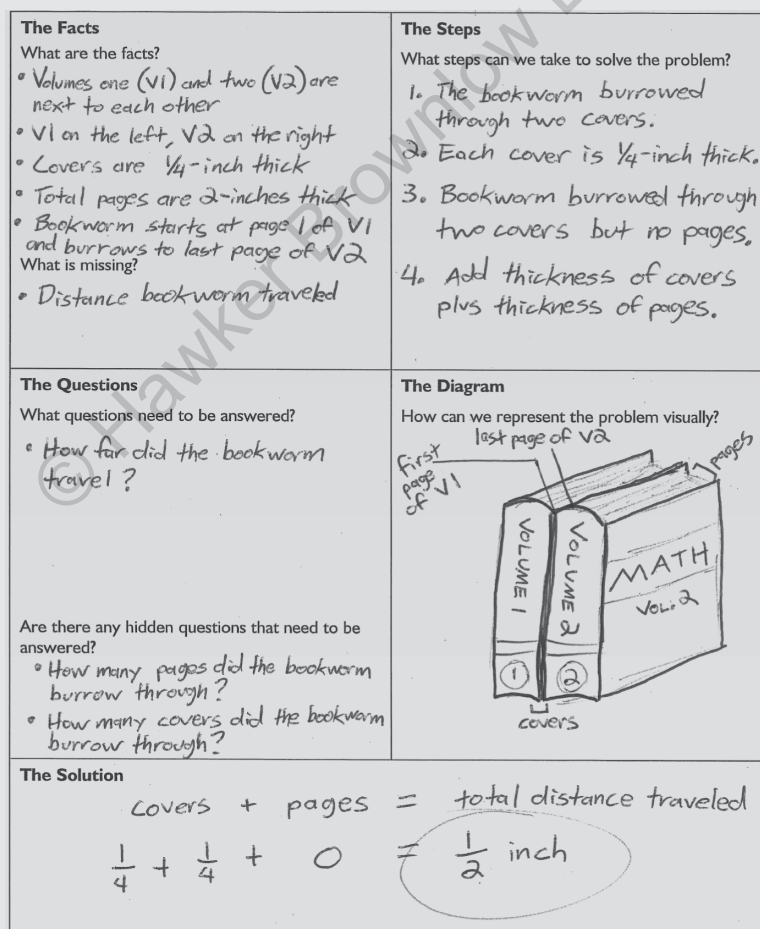 The Facts
What are the facts?
• Volumes one (V1) and two (V2) are
next to each other
• V1 on the left, V2 on the right
• Covers are 1/4-inch thick
• Total pages are 2-inches thick
• Bookworm starts at page 1 of V1
and burrows to last page of V2
What is missing?
• Distance bookworm traveled
The Steps
What steps can we take to solve the problem?
1. The bookworm burrowed
through two covers.
2. Each cover is 1/4-inch thick.
3. Bookworm burrowed through
two covers but no pages.
4. Add thickness of covers
plus thickness of pages.
The Questions
What questions need to be answered?
• How far did the bookworm
travel?
Are there any hidden questions that need to be
answered?
• How many pages did the bookworm
burrow through?
• How many covers did the bookworm
burrow through?
The Diagram
How can we represent the problem visually?
last page of V2
first
page
of V1
pages
VOLUME 1
VOLUME 2
MATH
VOL. 2
1
2
covers
The Solution
covers + pages = total distance traveled
1/4 + 1/4 + 0 = 1/2 inch
© Hawker Brownlow